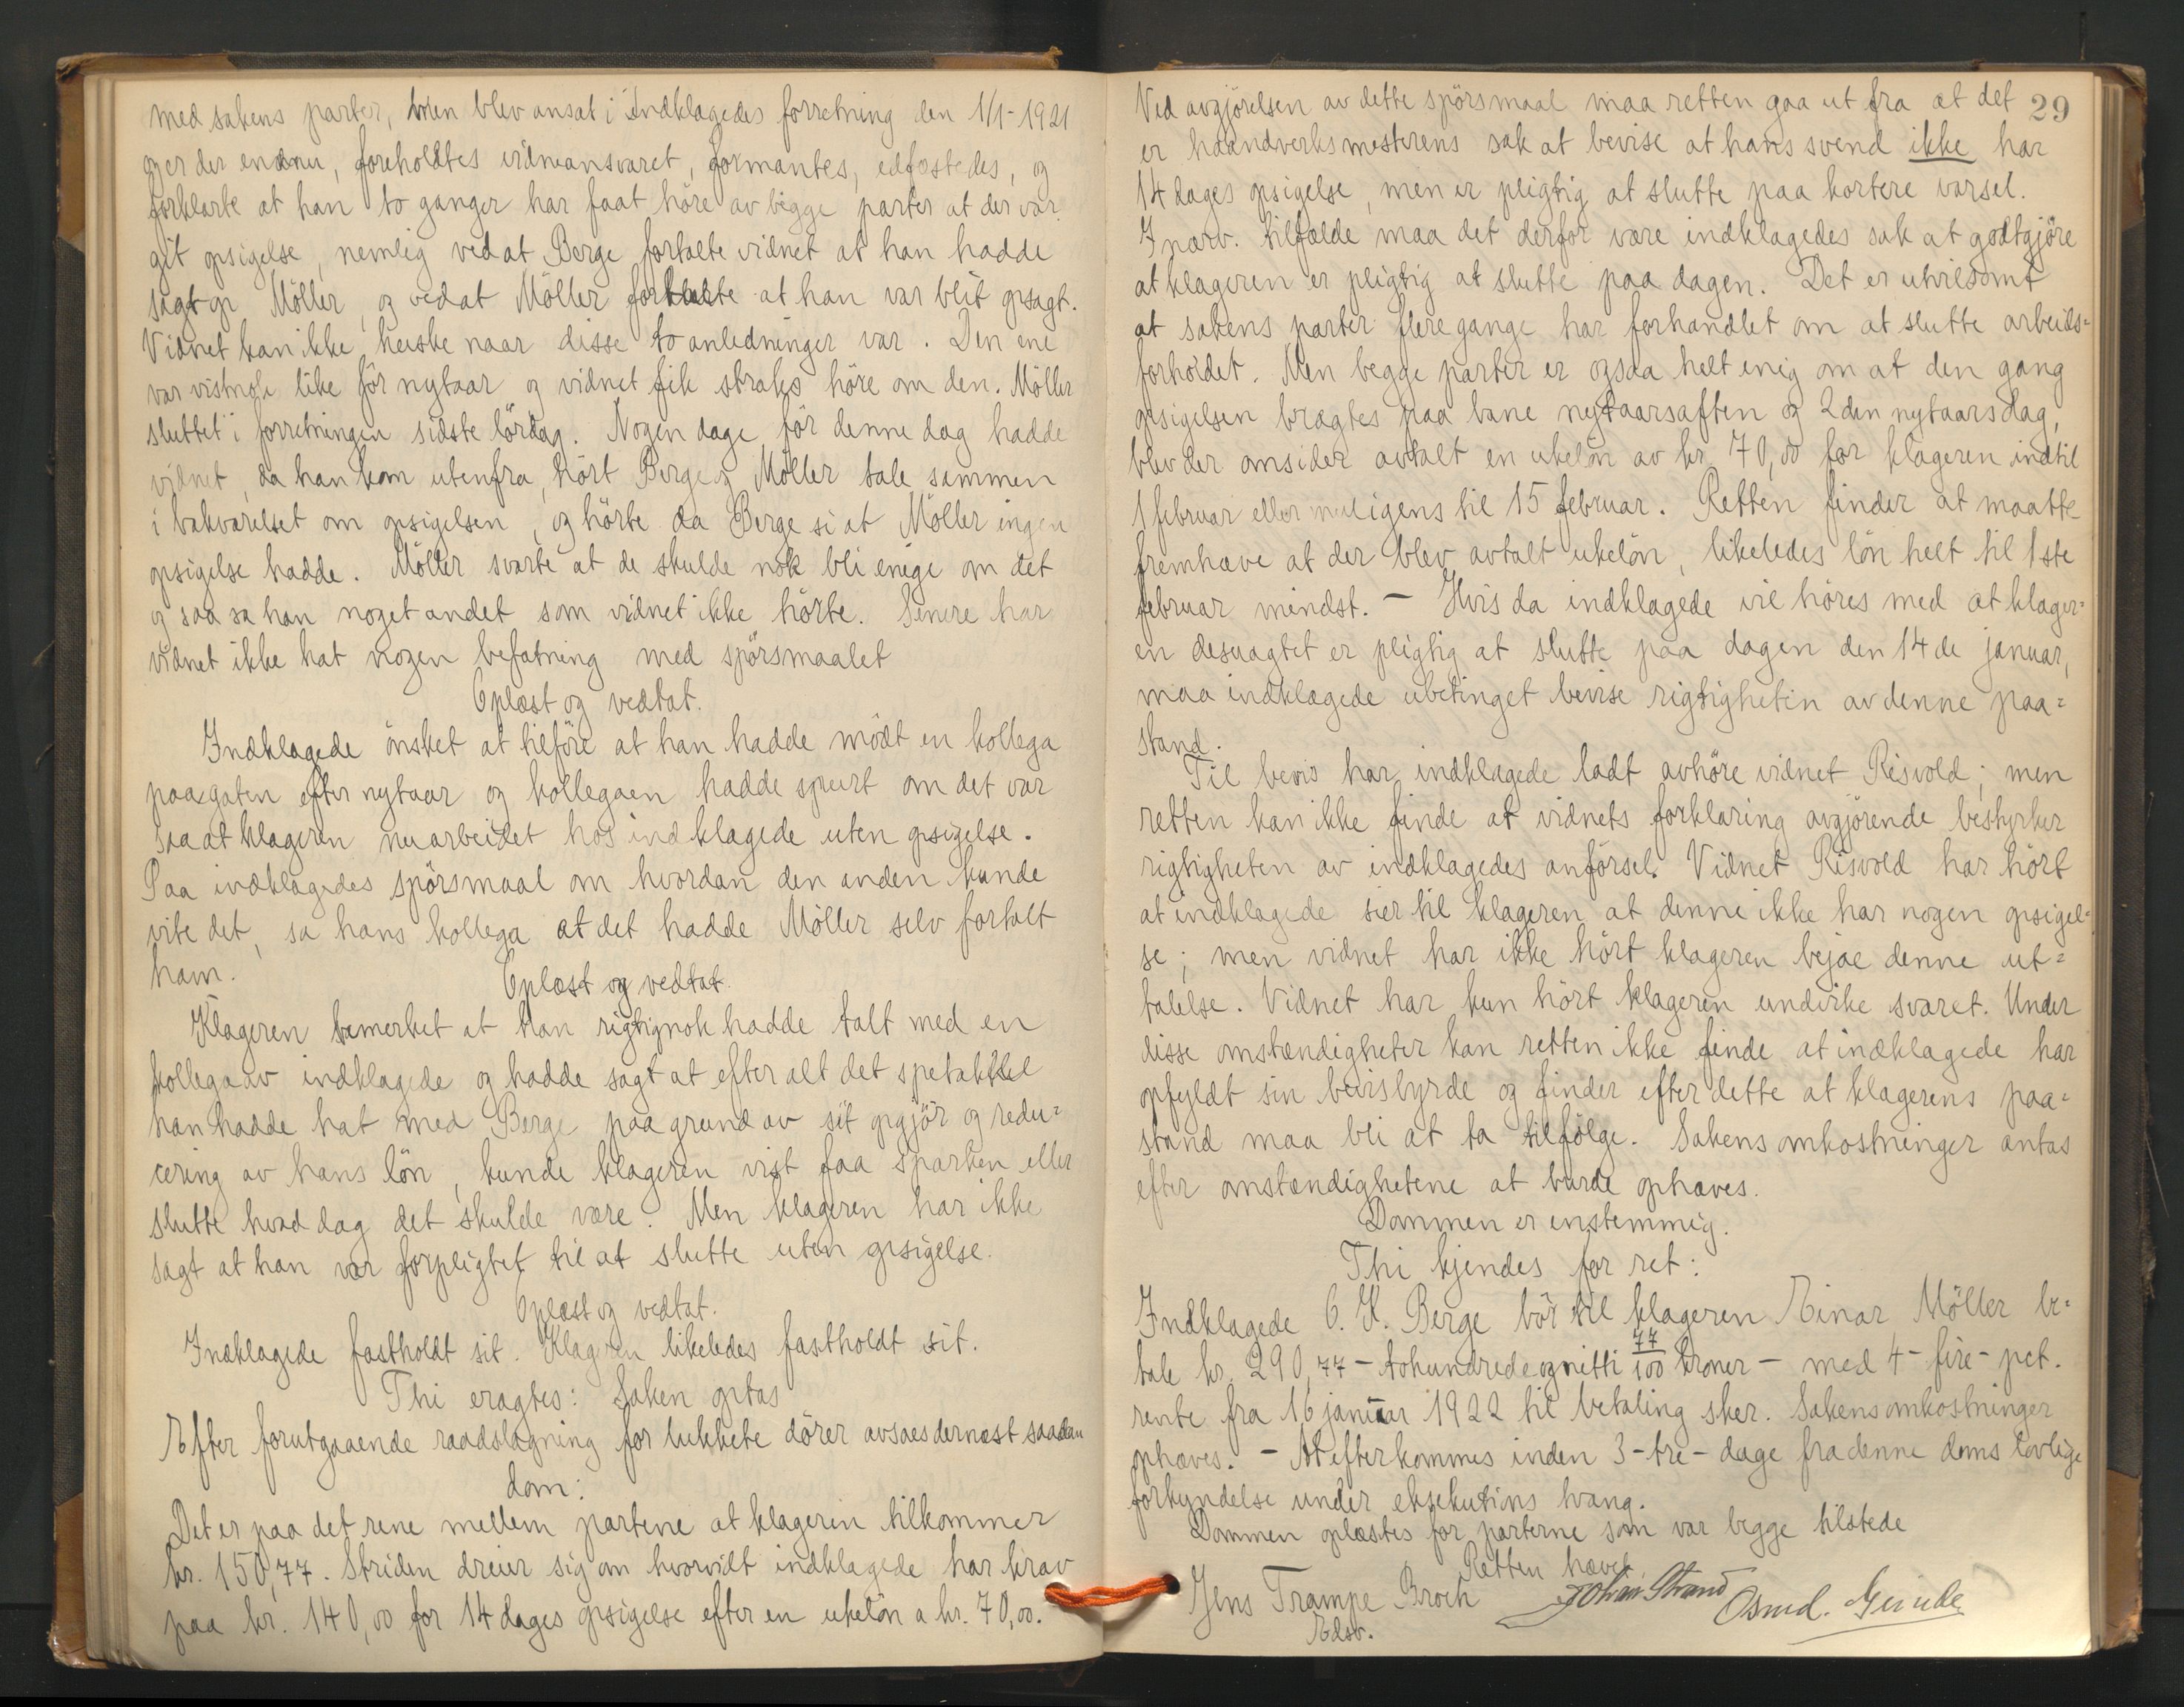 med sakens parter, blev ansat i Indklagedes forretning den 1/1-1921
og er der endnu, foreholdtes vidneansvaret, formantes, edfæstedes, og
forklarte at han to ganger har faat höre av begge parter at der var
git opsigelse, nemlig ved at Berge fortalte vidnet at han hadde
sagt op Möller, og ved at Möller fortalte at han var blit opsagt.
Vidnet kan ikke huske naar disse to anledninger var. Den ene
var vistnok like för nytaar og vidnet fik straks höre om den. Möller
sluttet i forretningen sidste lördag. Nogen dage för denne dag hadde
vidnet, da han kom utenfra, hört Berge og Möller tale sammen
i bakværelset om opsigelsen, og hörte da Berge si at Möller ingen
opsigelse hadde. Möller svarte at de skulde nok bli enige om det
og saa sa han noget andet som vidnet ikke hörte. Senere har
vidnet ikke hat nogen befatning med spörsmaalet
Oplæst og vedtat.
Indklagede önsket at tilföre at han hadde mödt en kollega
paa gaten efter nytaar og kollegaen hadde spurt om det var
saa at klageren nu arbeidet hos indklagede uten opsigelse.
Paa indklagedes spörsmaal om hvordan den anden kunde
vite det, sa hans kollega at det hadde Möller selv fortalt
ham.
Oplæst og vedtat.
Klageren bemerket at han rigtignok hadde talt med en
kollega av indklagede og hadde sagt at efter alt det spetakkel
han hadde hat med Berge paa grund av sit opgjör og redu=
cering av hans lön, kunde klageren vist faa sparken eller
slutte hvad dag det skulde være. Men klageren har ikke
sagt at han var forpligtet til at slutte uten opsigelse.
Oplæst og vedtat.
Indklagede fastholdt sit. Klageren likeledes fastholdt sit.
Thi eragtes: Saken optas
Efter forutgaaende raadslagning for lukkete dörer avsaes dernæst saadan
dom:
Det er paa det rene mellem partene at klageren tilkommer
kr. 150,77. Striden dreier sig om hvorvidt indklagede har krav
paa kr. 140,00 for 14 dages opsigelse efter en ukelön a kr. 70,00.
29
Ved avgjörelsen av dette spörsmaal maa retten gaa ut fra at det
er haandverksmesterens sak at bevise at hans svend ikke har
14 dages opsigelse, men er pligtig at slutte paa kortere varsel.
I nærv. tilfælde maa det derfor være indklagedes sak at godtgjöre
at klageren er pligtig at slutte paa dagen. Det er utvilsomt
at sakens parter flere gange har forhandlet om at slutte arbeids=
forholdet. Men begge parter er ogsaa helt enig om at den gang
opsigelsen bragtes paa bane nytaarsaften og 2den nytaarsdag,
blev der omsider avtalt en ukelön av kr. 70,00 for klageren indtil
1 februar eller muligens til 15 februar. Retten finder at maatte
fremhæve at der blev avtalt ukelön, likeledes lön helt til 1ste
februar mindst. - Hvis da indklagede vil höres med at klager=
en desuagtet er pligtig at slutte paa dagen den 14de januar,
maa indklagede ubetinget bevise rigtigheten av denne paa=
stand.
Til bevis har indklagede ladt avhöre vidnet Risvold; men
retten kan ikke finde at vidnets forklaring avgjörende bestyrker
rigtigheten av indklagedes anförsel. Vidnet Risvold har hört
at indklagede sier til klageren at denne ikke har nogen opsigel=
se; men vidnet har ikke hört klageren bejae denne ut=
talelse. Vidnet har kun hört klageren undvike svaret. Under
disse omstændigheter kan retten ikke finde at indklagede har
opfyldt sin bevisbyrde og finder efter dette at klagerens paa=
stand maa bli at ta tilfölge. Sakens omkostninger antas
efter omstændighetene at burde ophæves.
Dommen er enstemmig.
Thi kjendes for ret:
Indklagede O. K. Berge bör til klageren Einar Möller be=
tale kr. 290,77 - tohundredeognitti 77/100 kroner - med 4 - fire - pct.
rente fra 16 januar 1922 til betaling sker. Sakens omkostninger
ophæves. - At efterkommes inden 3 - tre - dage fra denne doms lovlige
forkyndelse under eksekutions tvang.
Dommen oplæstes for parterne som var begge tilstede
Retten hævet.
Jens Trampe Broch Johan Strand Osmd. Grinde
Edsv.